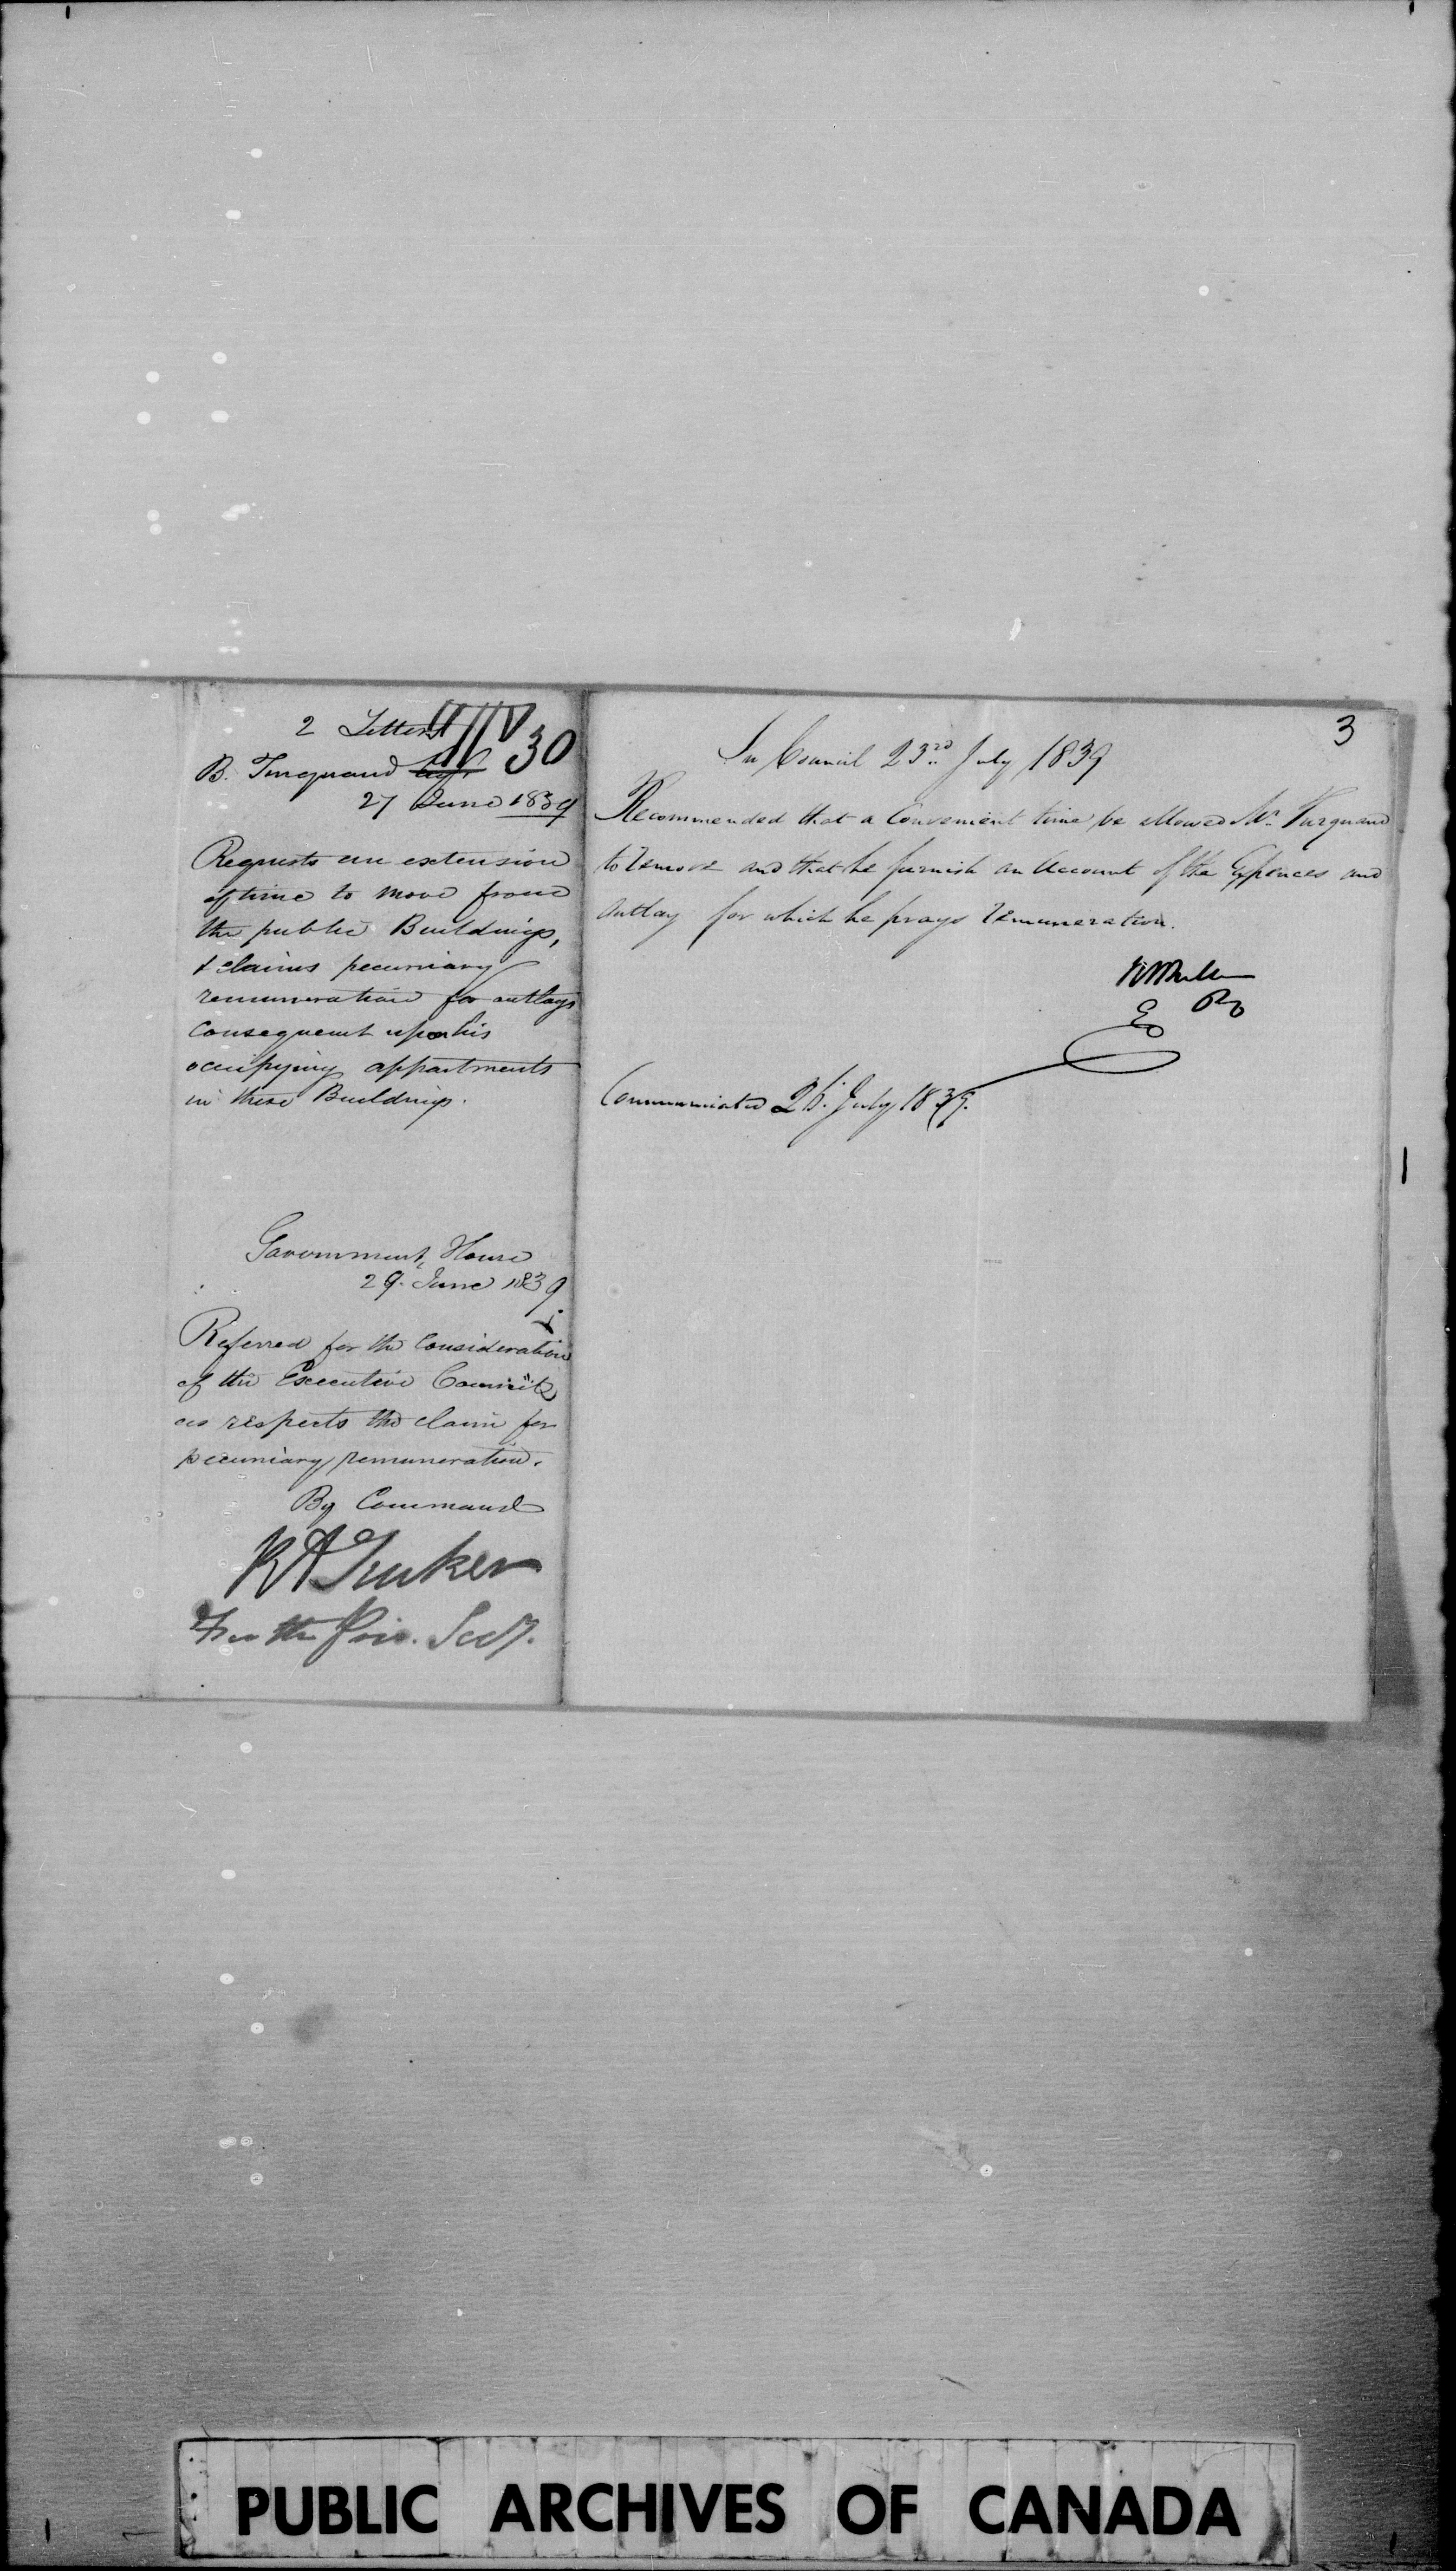 2 Letters
30
B. Turquand
27 June 1839
Requests an extension
of time to move from
the public Buildings,
& claims pecuniary
remuneration for outlays
consequent upon his
occupying appartments
in these Buildings.
Government House
29. June 1839
Referred for the Consideration
of the Executive Council
as respects the claim for
pecuniary remuneration.
By Command
R A Tucker
For the Prov. Secy.
3
In Council 23rd July 1839
Recommended that a Convenient time be allowed Mr. Turquand
to remove and that he furnish an Account of the Expences and
Outlay for which he prays remuneration.
Communicated 26. July 1839.
PUBLIC ARCHIVES OF CANADA